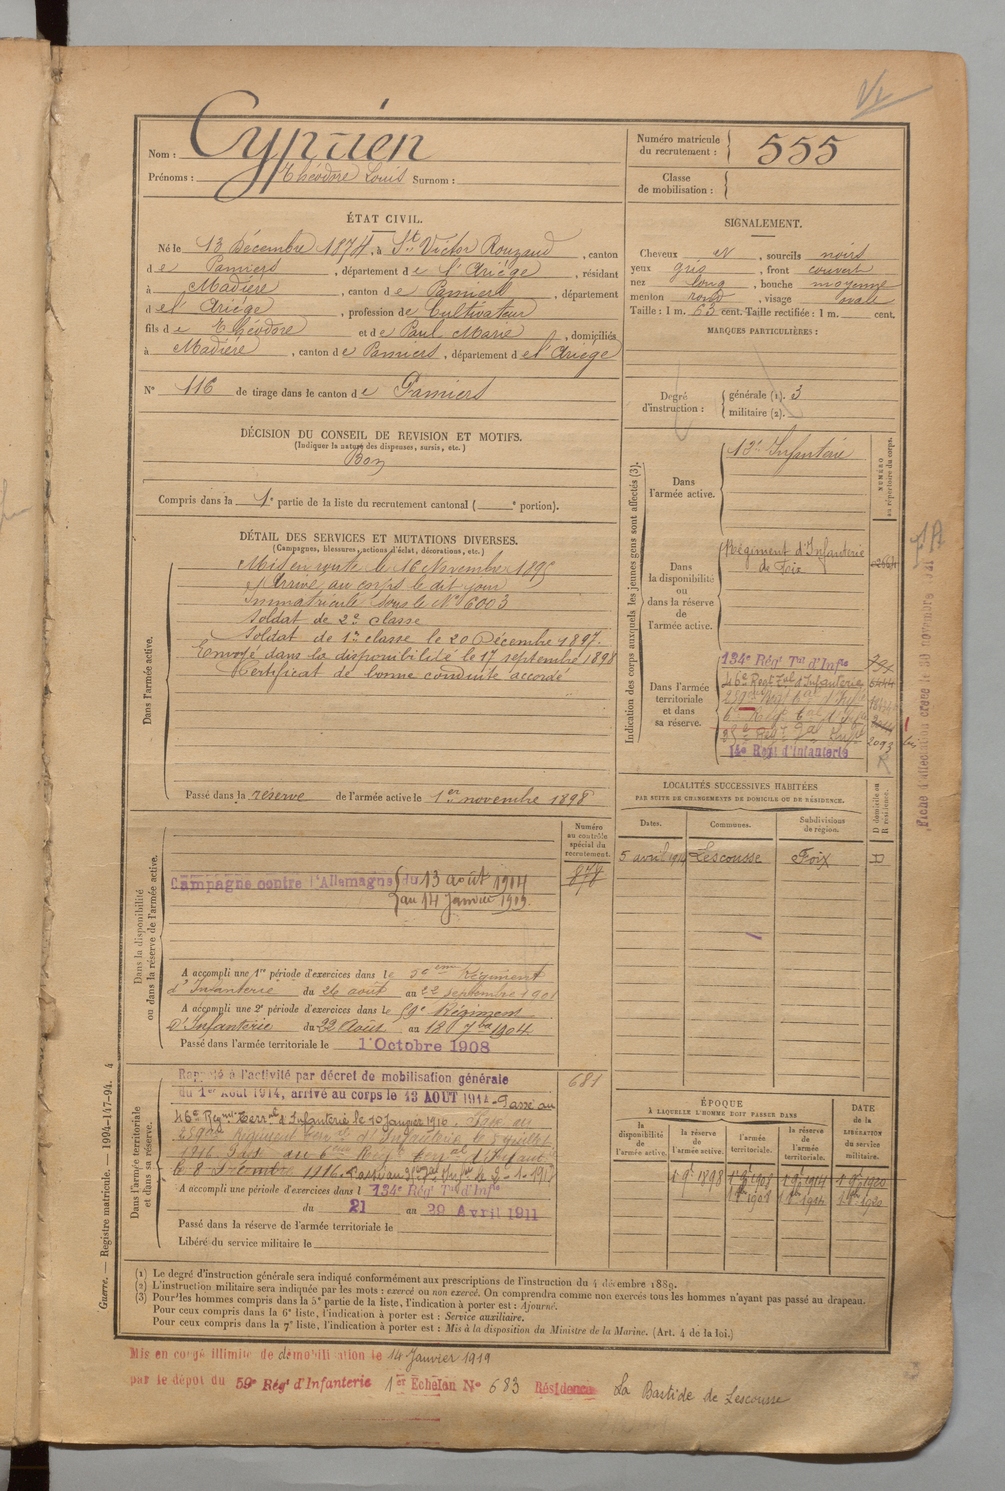 Nom : Cyprien
Prénoms : Théodore Louis Surnom :
Numéro matricule du recrutement : 555
Classe de mobilisation :
ÉTAT CIVIL.
Né le 13 Décembre 1874, à St Victor Rouzaud, canton
de Pamiers, département de l'Ariège, résidant
à Madière, canton de Pamiers, département
de l'Ariège, profession de Cultivateur
fils de Théodore et de Paul Marie, domiciliés
à Madière, canton de Pamiers, département de l'Ariège
N° 116 de tirage dans le canton de Pamiers
SIGNALEMENT.
Cheveux N, sourcils noirs
yeux gris, front couvert
nez long, bouche moyenne
menton rond, visage ovale
Taille : 1 m. 63 cent. Taille rectifiée : 1 m. cent.
MARQUES PARTICULIÈRES :
Degré d'instruction : générale (1). 3
militaire (2).
DÉCISION DU CONSEIL DE REVISION ET MOTIFS.
(Indiquer la nature des dispenses, sursis, etc.)
Bon
Compris dans la 1e partie de la liste du recrutement cantonal ( e portion).
DÉTAIL DES SERVICES ET MUTATIONS DIVERSES.
(Campagnes, blessures, actions d'éclat, décorations, etc.)
Dans l'armée active.
Mis en route le 16 Novembre 1895
Arrivé au corps le dit jour
Immatriculé sous le N° 6003
Soldat de 2e classe
Soldat de 1re classe le 20 Décembre 1897.
Envoyé dans la disponibilité le 17 septembre 1898
Certificat de bonne conduite accordé
Passé dans la réserve de l'armée active le 1er novembre 1898
Indication des corps auxquels les jeunes gens sont affectés (3).
NUMÉRO au répertoire du corps.
Dans l'armée active.
Infanterie
Dans la disponibilité ou dans la réserve de l'armée active.
Régiment d'Infanterie
de Foix
Dans l'armée territoriale et dans sa réserve.
134e Rég' Tal d'Infie
46e Regt d'Infanterie
14e Regt d'Infanterie
2093
R
LOCALITÉS SUCCESSIVES HABITÉES
PAR SUITE DE CHANGEMENTS DE DOMICILE OU DE RÉSIDENCE.
Dates. Communes. Subdivisions de région. D domicile ou R résidence.
5 avril 1914 Lescousse Foix D
Dans la disponibilité ou dans la réserve de l'armée active.
Numéro au contrôle spécial du recrutement.
878
Campagne contre l'Allemagne du 13 août 1914
au 14 Janvier 1919.
A accompli une 1re période d'exercices dans le 59ème Régiment
d'Infanterie du 26 août au 22 septembre 1901
A accompli une 2e période d'exercices dans le 59e Régiment
d'Infanterie du 22 Août au 18 7bre 1904
Passé dans l'armée territoriale le 1 Octobre 1908
Dans l'armée territoriale et dans sa réserve.
681
Rappelé à l'activité par décret de mobilisation générale
du 1er Août 1914, arrivé au corps le 13 AOUT 1914 - Passé au
46e Régnt Terral d'Infanterie le 10 Janvier 1916. Passé au
Régiment d'Infanterie le 5 juillet
1916. Passé au
1916.
A accompli une période d'exercices dans l 134e Rég' Tal d'Infie
du 21 au 29 Avril 1911
Passé dans la réserve de l'armée territoriale le
Libéré du service militaire le
ÉPOQUE
À LAQUELLE L'HOMME DOIT PASSER DANS
la disponibilité de l'armée active. la réserve de l'armée active. l'armée territoriale. la réserve de l'armée territoriale.
DATE de la LIBÉRATION du service militaire.
1 9e 1898 1 9e 1908 1 9e 1914 1 9e 1920
(1) Le degré d'instruction générale sera indiqué conformément aux prescriptions de l'instruction du 4 décembre 1889.
(2) L'instruction militaire sera indiquée par les mots : exercé ou non exercé. On comprendra comme non exercés tous les hommes n'ayant pas passé au drapeau.
(3) Pour les hommes compris dans la 5e partie de la liste, l'indication à porter est : Ajourné.
Pour ceux compris dans la 6e liste, l'indication à porter est : Service auxiliaire.
Pour ceux compris dans la 7e liste, l'indication à porter est : Mis à la disposition du Ministre de la Marine. (Art. 4 de la loi.)
Guerre. — Registre matricule. — 1994-147-94. 4
Mis en congé illimité de démobilisation le 14 Janvier 1919
par le dépôt du 59e Rég' d'Infanterie 1er Echelon N° 683 Résidence La Bastide de Lescousse